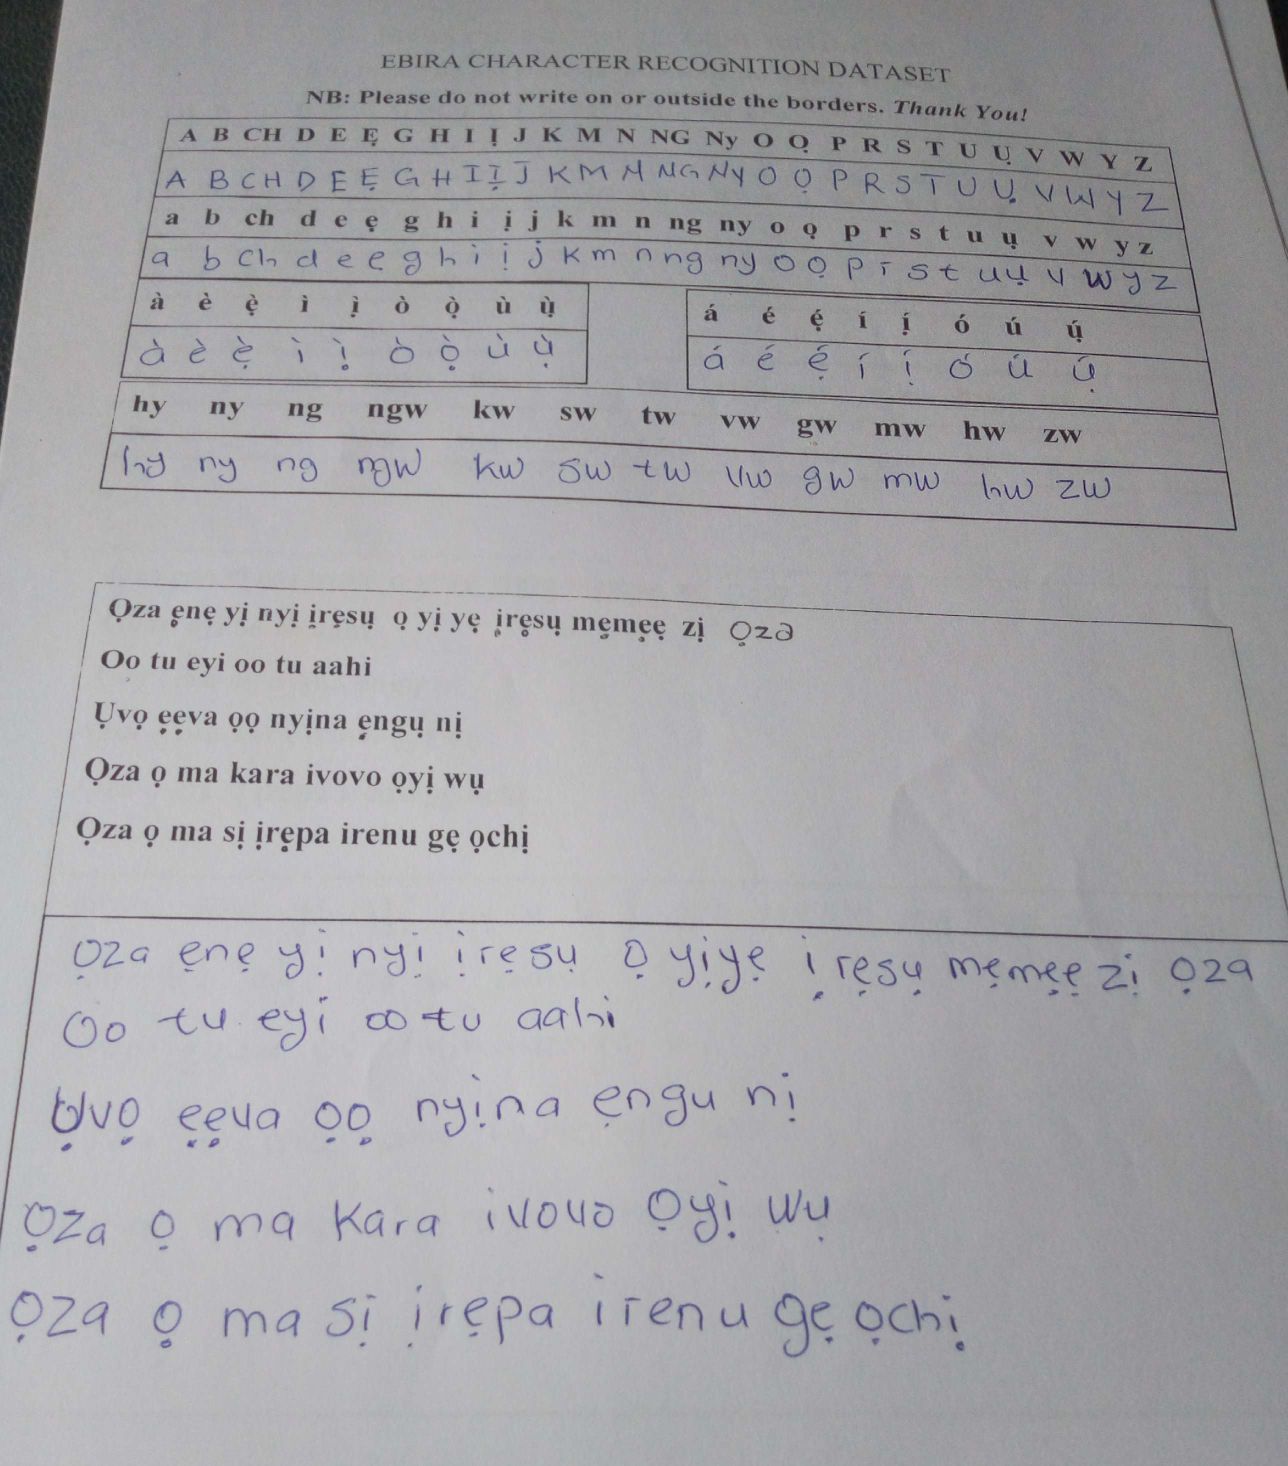 EBIRA CHARACTER RECOGNITION DATASET
NB: Please do not write on or outside the borders. Thank You!
A B CH D E Ẹ G H I Ị J K M N NG Ny O Ọ P R S T U Ụ V W Y Z
A B CH D E Ẹ G H I Ị J K M N NG NY O Ọ P R S T U Ụ V W Y Z
a b ch d e ẹ g h i ị j k m n ng ny o ọ p r s t u ụ v w y z
a b ch d e ẹ g h i ị j k m n ng ny o ọ p r s t u ụ v w y z
à è ẹ̀ ì ị̀ ò ọ̀ ù ụ̀
á é ẹ́ í ị́ ó ú ụ́
à è ẹ̀ ì ị̀ ò ọ̀ ù ụ̀
á é ẹ́ í ị́ ó ú ụ́
hy ny ng ngw kw sw tw vw gw mw hw zw
hy ny ng ngw kw sw tw vw gw mw hw zw
Ọza ẹnẹ yị nyị ịrẹsụ ọ yị yẹ ịrẹsụ mẹmẹẹ zị Ọza
Oo tu eyi oo tu aahi
Ụvọ ẹẹva ọọ nyịna ẹngụ nị
Ọza ọ ma kara ivovo ọyị wụ
Ọza ọ ma sị ịrẹpa irenu gẹ ọchị
Ọza ẹnẹ yị nyị ịrẹsụ Ọ yịyẹ ịrẹsụ mẹmẹẹ zị Ọza
Oo tu eyi oo tu aahi
Ụvọ ẹẹva ọọ nyịna ẹngu nị
Ọza ọ ma kara ivovo Ọyị wụ
Ọza ọ ma sị ịrẹpa irenu gẹ ọchị